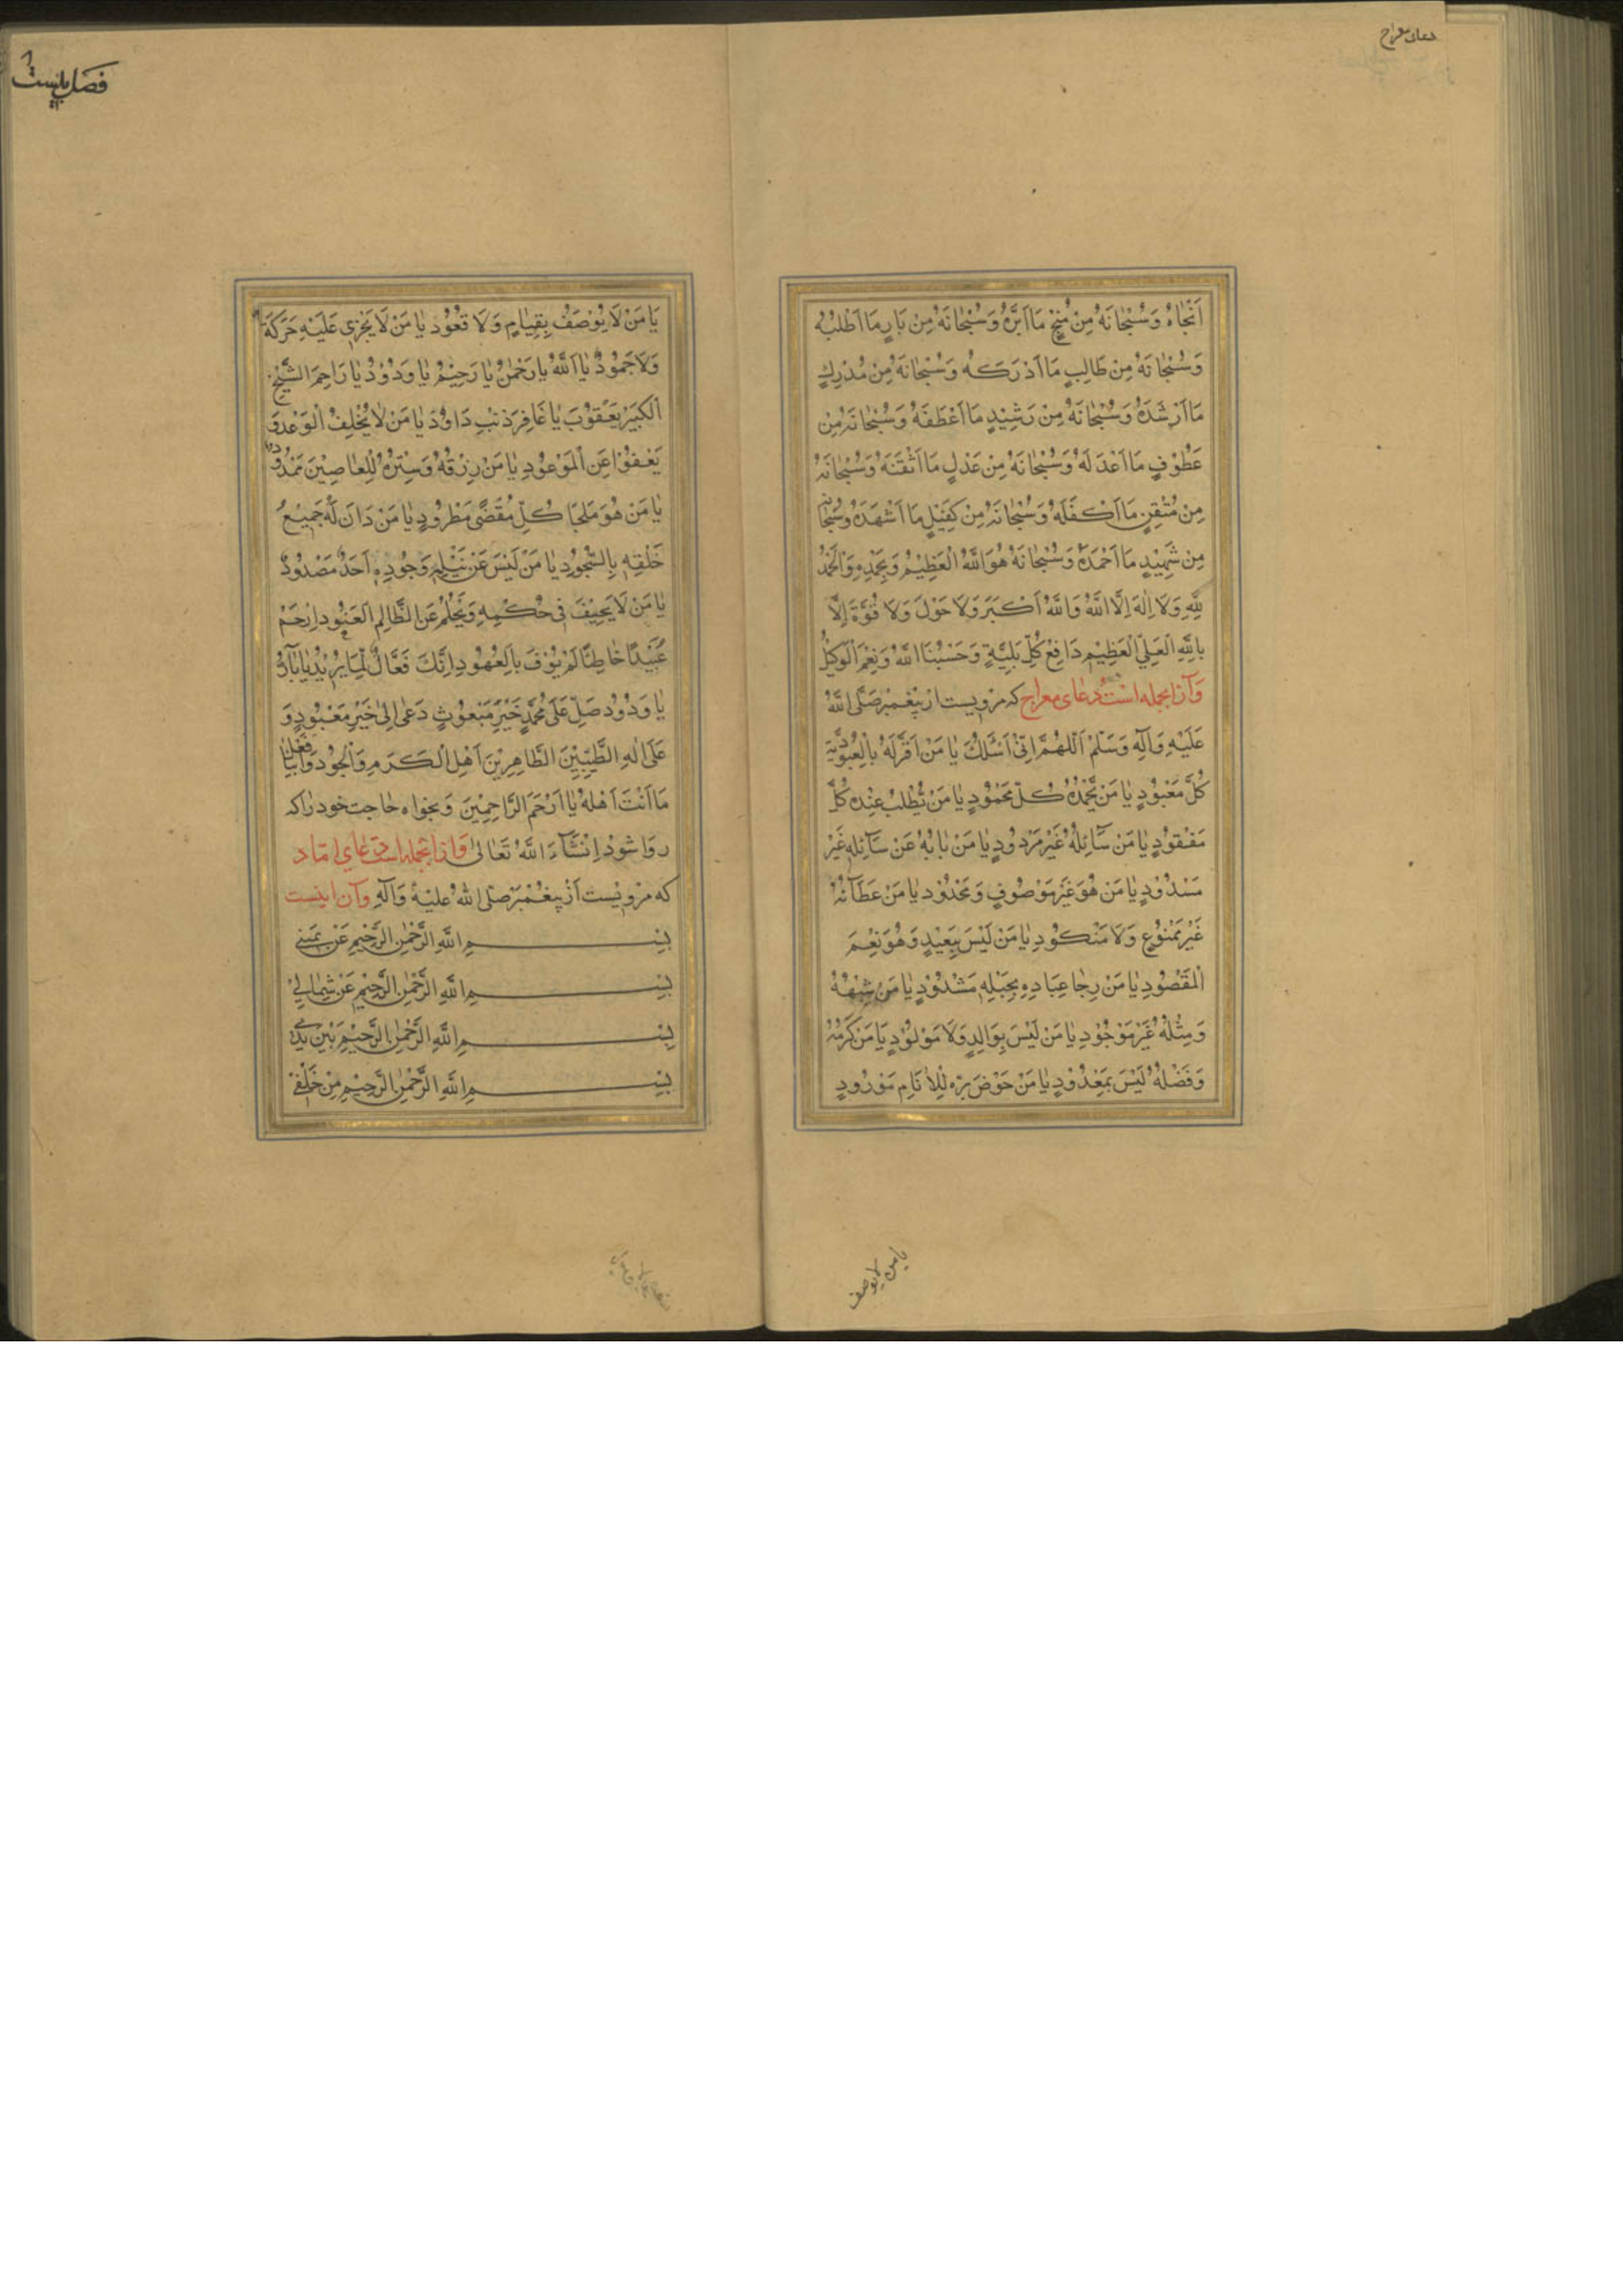 دعای معراج
اَنْجَاهُ وَسُبْحَانَهُ مِنْ مُنْجٍ مَا اَبَرَّهُ وَسُبْحَانَهُ مِنْ بَارٍ مَا اَطْلَبَهُ
وَسُبْحَانَهُ مِنْ طَالِبٍ مَا اَدْرَكَهُ وَسُبْحَانَهُ مِنْ مُدْرِكٍ
مَا اَرْشَدَهُ وَسُبْحَانَهُ مِنْ رَشِيْدٍ مَا اَعْطَفَهُ وَسُبْحَانَهُ مِنْ
عَطُوْفٍ مَا اَعْدَلَهُ وَسُبْحَانَهُ مِنْ عَدْلٍ مَا اَتْقَنَهُ وَسُبْحَانَهُ
مِنْ مُتْقِنٍ مَا اَكْفَلَهُ وَسُبْحَانَهُ مِنْ كَفِيْلٍ مَا اَشْهَدَهُ وَسُبْحَانَهُ
مِنْ شَهِيْدٍ مَا اَحْمَدَهُ وَسُبْحَانَهُ هُوَ اللّٰهُ الْعَظِيْمُ وَبِحَمْدِهِ وَالْحَمْدُ
لِلّٰهِ وَلَا اِلٰهَ اِلَّا اللّٰهُ وَاللّٰهُ اَكْبَرُ وَلَا حَوْلَ وَلَا قُوَّةَ اِلَّا
بِاللّٰهِ الْعَلِيِّ الْعَظِيْمِ دَافِعُ كُلِّ بَلِيَّةٍ وَحَسْبُنَا اللّٰهُ وَنِعْمَ الْوَكِيْلُ
وَ ازانجمله است دعای معراج که مرویست از پیغمبر صَلَّی اللّٰهُ
عَلَيْهِ وَآلِهِ وَسَلَّمْ اَللّٰهُمَّ اِنِّيْ اَسْئَلُكَ يَا مَنْ اَقَرَّ لَهُ بِالْعُبُوْدِيَّةِ
كُلُّ مَعْبُوْدٍ يَا مَنْ يَحْمَدُهُ كُلُّ مَحْمُوْدٍ يَا مَنْ يُطْلَبُ عِنْدَهُ كُلُّ
مَفْقُوْدٍ يَا مَنْ سَآئِلُهُ غَيْرُ مَرْدُوْدٍ يَا مَنْ بَابُهُ عَنْ سَآئِلِهِ غَيْرُ
مَسْدُوْدٍ يَا مَنْ هُوَ غَيْرُ مَوْصُوْفٍ وَمَحْدُوْدٍ يَا مَنْ عَطَآئُهُ
غَيْرُ مَمْنُوْعٍ وَلَا مَنْكُوْدٍ يَا مَنْ لَيْسَ بِبَعِيْدٍ وَهُوَ نِعْمَ
الْمَقْصُوْدِ يَا مَنْ رِجَا عِبَادِهِ بِحَبْلِهِ مَشْدُوْدٍ يَا مَنْ شِبْهُهُ
وَمِثْلُهُ غَيْرُ مَوْجُوْدٍ يَا مَنْ لَيْسَ بِوَالِدٍ وَلَا مَوْلُوْدٍ يَا مَنْ كَرَمُهُ
وَفَضْلُهُ لَيْسَ بِمَعْدُوْدٍ يَا مَنْ حَوْضُ بِرِّهِ لِلْاَنَامِ مَوْرُوْدٍ
يا من لا يوصف
فصل بیست
يَا مَنْ لَا يُوْصَفُ بِقِيَامٍ وَلَا قُعُوْدٍ يَا مَنْ لَا يَجْرِيْ عَلَيْهِ حَرَكَةٌ
وَلَا جُمُوْدٌ يَا اَللّٰهُ يَا رَحْمٰنُ يَا رَحِيْمُ يَا وَدُوْدُ يَا رَاحِمَ الشَّيْخِ
الْكَبِيْرِ يَعْقُوْبَ يَا غَافِرَ ذَنْبِ دَاوُدَ يَا مَنْ لَا يُخْلِفُ الْوَعْدَ وَ
يَعْفُوْا عَنِ الْمَوْعُوْدِ يَا مَنْ رِزْقُهُ وَسِتْرُهُ لِلْعَاصِيْنَ مَمْدُوْدٌ
يَا مَنْ هُوَ مَلْجَأُ كُلِّ مُقْصًى مَطْرُوْدٍ يَا مَنْ دَانَ لَهُ جَمِيْعُ
خَلْقِهِ بِالسُّجُوْدِ يَا مَنْ لَيْسَ عَنْ نَيْلِهِ وَجُوْدِهِ اَحَدٌ مَصْدُوْدٌ
يَا مَنْ لَا يَحِيْفُ فِيْ حُكْمِهِ وَيَحْلُمُ عَنِ الظَّالِمِ الْعَنُوْدِ اِرْحَمْ
عُبَيْدًا خَاطِئًا لَمْ يُوْفِ بِالْعُهُوْدِ اِنَّكَ فَعَّالٌ لِمَا يُرِيْدُ يَا بَآرُّ
يَا وَدُوْدُ صَلِّ عَلٰى مُحَمَّدٍ خَيْرِ مَبْعُوْثٍ دَعٰى اِلٰى خَيْرِ مَعْبُوْدٍ وَ
عَلٰى اٰلِهِ الطَّيِّبِيْنَ الطَّاهِرِيْنَ اَهْلِ الْكَرَمِ وَالْجُوْدِ وَافْعَلْ بِنَا
مَا اَنْتَ اَهْلُهُ يَا اَرْحَمَ الرَّاحِمِيْنَ وَ بخواه حاجت خود را که
روا شود اِنْشَآءَ اللّٰهُ تَعَالٰى وَ ازانجمله است دعای
که مرویست از پیغمبر صلی الله علیه وَآلِهِ و آن اینست
بِسْمِ اللّٰهِ الرَّحْمٰنِ الرَّحِيْمِ عَنْ يَمِيْنِيْ
بِسْمِ اللّٰهِ الرَّحْمٰنِ الرَّحِيْمِ عَنْ شِمَالِيْ
بِسْمِ اللّٰهِ الرَّحْمٰنِ الرَّحِيْمِ بَيْنَ يَدَيَّ
بِسْمِ اللّٰهِ الرَّحْمٰنِ الرَّحِيْمِ مِنْ خَلْفِيْ